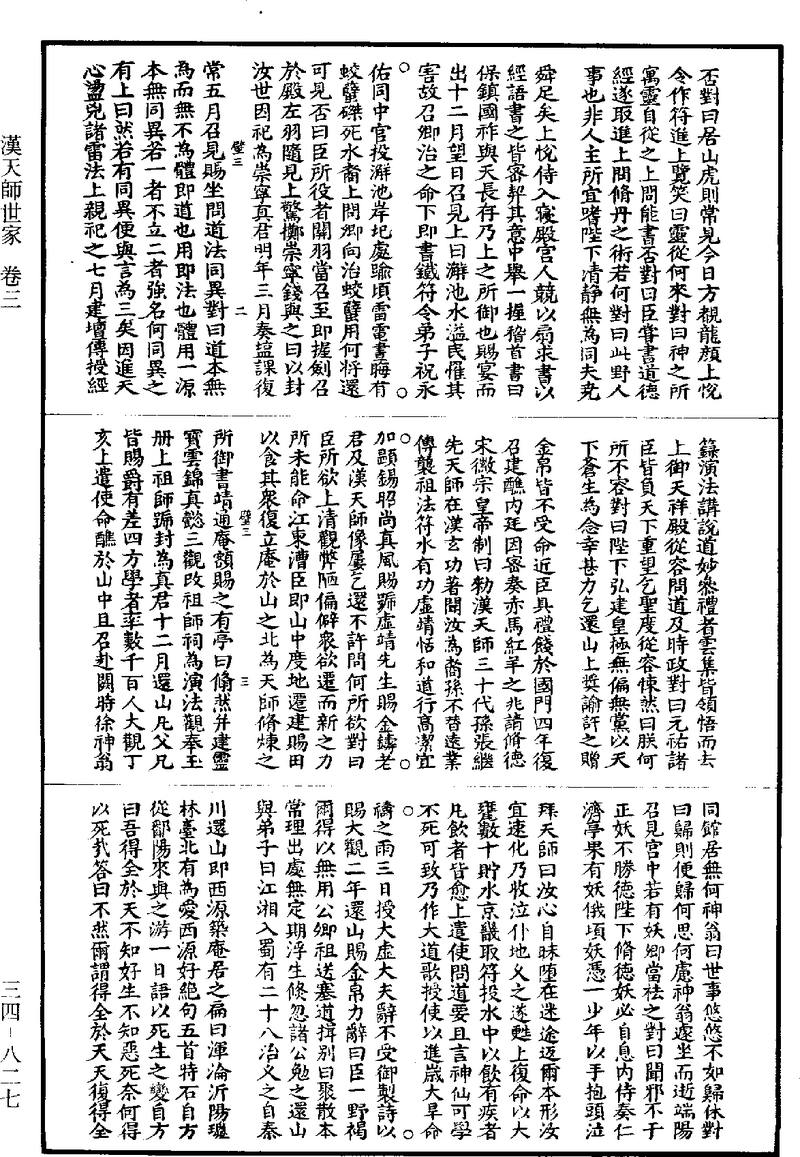 否對曰居山虎則常見今日方覩龍顔上悅
令作符進上覽笑曰靈從何來對曰神之所
寓靈自從之上問能書否對曰臣嘗書道德
經遂取進上問脩丹之術若何對曰此野人
事也非人主所宜嗜陛下清静無為同夫堯
舜足矣上悅侍入寝殿宫人競以扇求書以
經語書之皆密契其意中舉一握稽首書曰
保鎮國祚與天長存乃上之所御也賜宴而
出十二月望日召見上曰澥池水溢民罹其
害故召卿治之命下即書鐵符令弟子祝永
佑同中官投澥池岸圮處踰頃雷電晝晦有
蛟𧔥磔死水裔上問卿向治蛟𧔥用何將還
可見否曰臣所役者關羽當召至即握劍召
於殿左羽隨見上驚擲崇寧錢與之曰以封
汝世因祀為崇寧真君明年三月奏塩課復
常五月召見賜坐問道法同異對曰道本無
為而無不為體即道也用即法也體用一源
本無同異若一者不立二者強名何同異之
有上曰然若有同異便與言為三矣因進天
心盪兇諸雷法上親祀之七月建壇傳授經
籙演法講說道妙叅禮者雲集皆領悟而去
上御天祥殿從容問道及時政對曰元祐諸
臣皆負天下重望乞聖度從容悚然曰朕何
所不容對曰陛下弘建皇極無偏無黨以天
下蒼生為念幸甚力乞還山上奬諭許之贈
金帛皆不受命近臣具禮餞於國門四年復
召建醮内廷因密奏赤馬紅羊之兆請脩德
宋徽宗皇帝制曰勑漢天師三十代孫張繼
先天師在漢玄功著聞汝為裔孫不替遠業
傳襲祖法符水有功虛靖恬和道行高潔宜
加顯錫昭尚真風賜號虛靖先生賜金鑄老
君及漢天師像屢乞還不許問何所欲對曰
臣所欲上清觀弊陋偏僻衆欲遷而新之力
所未能命江東漕臣即山中度地遷建賜田
以食其衆復立庵於山之北為天師脩煉之
所御書靖通庵額賜之有亭曰翛然并建靈
寶雲錦真懿三觀改祖師祠為演法觀奉玉
册上祖師號封為真君十二月還山凡父兄
皆賜爵有差四方學者率數千百人大觀丁
亥上遣使命醮於山中且召赴闕時徐神翁
同館居無何神翁曰世事悠悠不如歸休對
曰歸則便歸何思何慮神翁遽坐而逝端陽
召見宫中若有妖卿當袪之對曰聞邪不干
正妖不勝德陛下脩徳妖必自息内侍奏仁
濟亭果有妖俄頃妖憑一少年以手抱頭泣
拜天師曰汝心自昧墮在迷途返爾本形汝
宜速化乃收泣仆地乂之遂甦上復命以大
甕數十貯水京畿取符投水中以飲有疾者
凡飲者皆愈上遣使問道要且言神仙可學
不死可致乃作大道歌授使以進嵗大旱命
禱之雨三日授大虚大夫辭不受御製詩以
賜大觀二年還山賜金帛力辭曰臣一野褐
爾得以無用公卿祖送塞道揖别曰聚散本
常理出處無定期浮生倏忽諸公勉之還山
與弟子曰江湘入蜀有二十八治乂之自秦
川還山即西源築庵居之扁曰渾淪沂陽璡
林臺北有為愛西源好絶句五首特石自方
從鄱陽來與之游一日語以死生之變自方
曰吾得全於天不知好生不知惡死奈何得
以死弍答曰不然爾謂得全於天天復得全
壁三
二
壁三
三
漢天師世家 卷三
三四－八二七